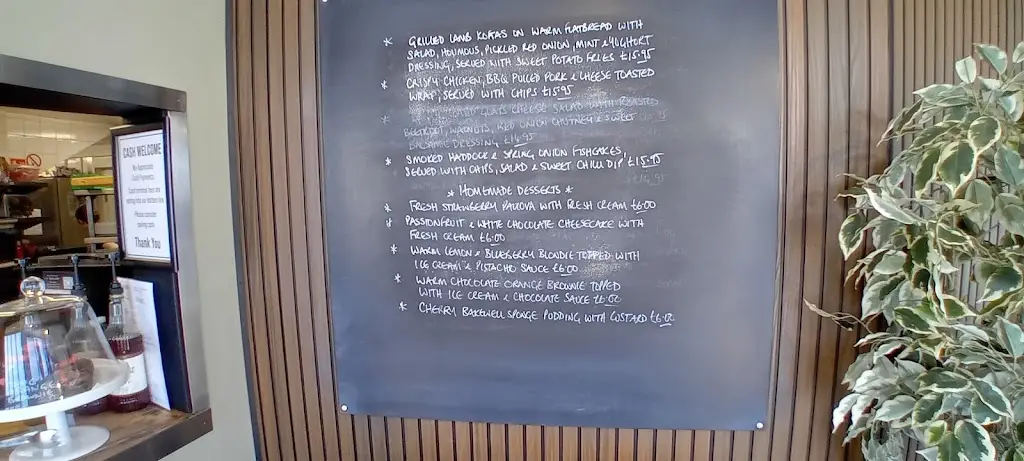 * GRILLED LAMB KOFTAS ON WARM FLATBREAD WITH
SALAD, HOUMOUS, PICKLED RED ONION, MINT & YOGHURT
DRESSING, SERVED WITH SWEET POTATO FRIES £15.95
* CRISPY CHICKEN, BBQ PULLED PORK & CHEESE TOASTED
WRAP, SERVED WITH CHIPS £15.95
GOATS CHEESE SALAD WITH ROASTED
BEETROOT, WALNUTS, RED ONION CHUTNEY & SWEET
BALSAMIC DRESSING £14.95
* SMOKED HADDOCK & SPRING ONION FISHCAKES,
SERVED WITH CHIPS, SALAD & SWEET CHILLI DIP £15.95
* HOMEMADE DESSERTS *
* FRESH STRAWBERRY PAVLOVA WITH FRESH CREAM £6.00
* PASSIONFRUIT & WHITE CHOCOLATE CHEESECAKE WITH
FRESH CREAM £6.00
* WARM LEMON & BLUEBERRY BLONDIE TOPPED WITH
ICE CREAM & PISTACHIO SAUCE £6.00
* WARM CHOCOLATE ORANGE BROWNIE TOPPED
WITH ICE CREAM & CHOCOLATE SAUCE £6.00
* CHERRY BAKEWELL SPONGE PUDDING WITH CUSTARD £6.00
CASH WELCOME
We Appreciate
Cash Payments
Card terminal fees are
Please consider
Thank You